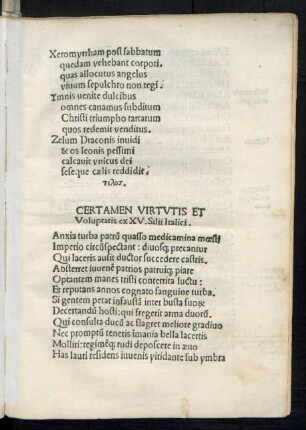 Xeromyrrham post sabbatum
quedam vehebant corpori.
quas allocutus angelus
viuum sepulchro non tegi.
Ymnis uenite dulcibus
omnes canamus subditum
Christi triumpho tartarum
quos redemit venditus.
Zelum Draconis inuidi
& os leonis pessimi
calcauit vnicus dei
sese que cælis reddidit.
τελοσ.
CERTAMEN VIRTVTIS ET
Voluptatis ex XV. Silii Italici.
Anxia turba patrũ quasso medicamina mœsti
Imperio circũspectant: diuosq; precantur
Qui laceris ausit ductor succedere castris.
Absterret iuuenẽ patrios patruiq; piare
Optantem manes tristi conterrita luctu:
Et reputans annos cognato sanguine turba.
Si gentem petat infaustã inter busta suoꝝ
Decertandũ hosti: qui fregerit arma duorũ.
Qui consulta ducũ ac flagret meliore gradiuo
Nec promptũ teneris imania bella lacertis
Moliri: regimẽq; rudi deposcere in æuo
Has lauri residens iuuenis viridante sub vmbra